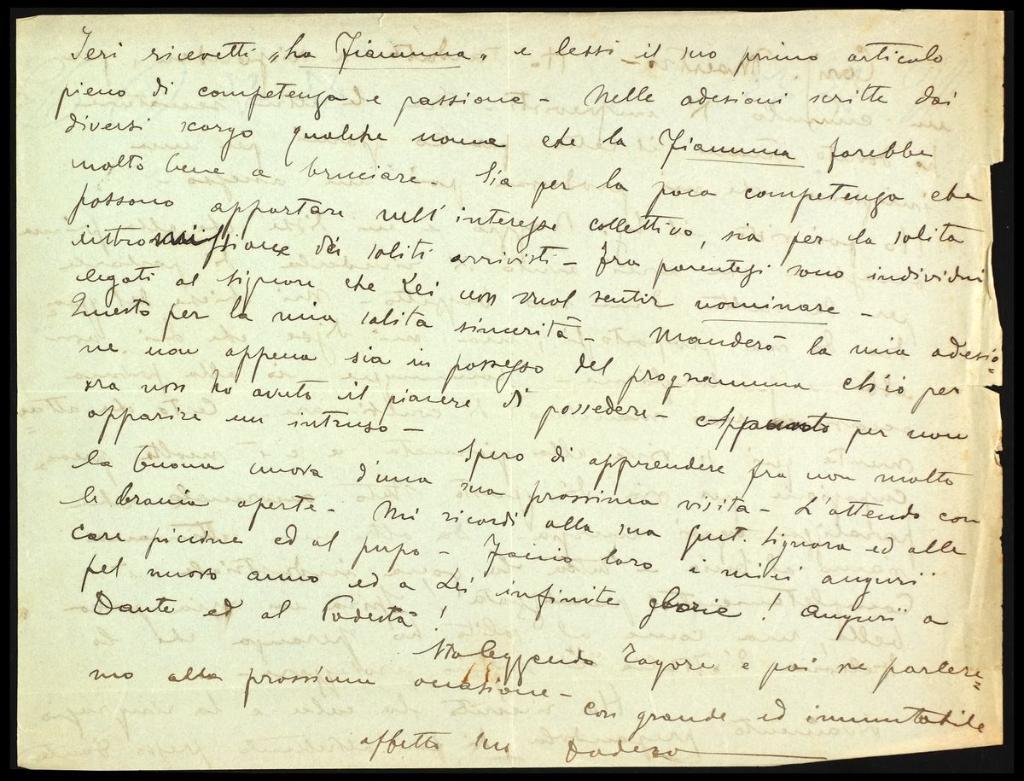 Ieri ricevetti „La Fiamma„ e lessi il suo primo articolo
pieno di competenza e passione - Nelle adesioni scritte dai
diversi scorgo qualche nome che la Fiamma farebbe
molto bene a bruciare. Sia per la poca competenza che
possono apportare nell'interesse collettivo, sia per la solita
intromissione dei soliti arrivisti - Fra parentesi sono individui
legati al signore che Lei non vuol sentir nominare -
Questo per la mia solita sincerità - Manderò la mia adesio„
ne non appena sia in possesso del programma ch'io per
ora non ho avuto il piacere di possedere - Appunto per non
apparire un intruso -
Spero di apprendere fra non molto
la buona nuova d'una sua prossima visita - L'attendo con
le braccia aperte - Mi ricordi alla sua Gent. Signora ed alle
care piccine ed al pupo - Faccio loro i miei auguri
pel nuovo anno ed a Lei infinite glorie! Auguri a
Dante ed al Podestà!
Sto leggendo Tagore e poi ne parlere„
mo alla prossima occasione -
con grande ed immutabile
affetto suo Dodero